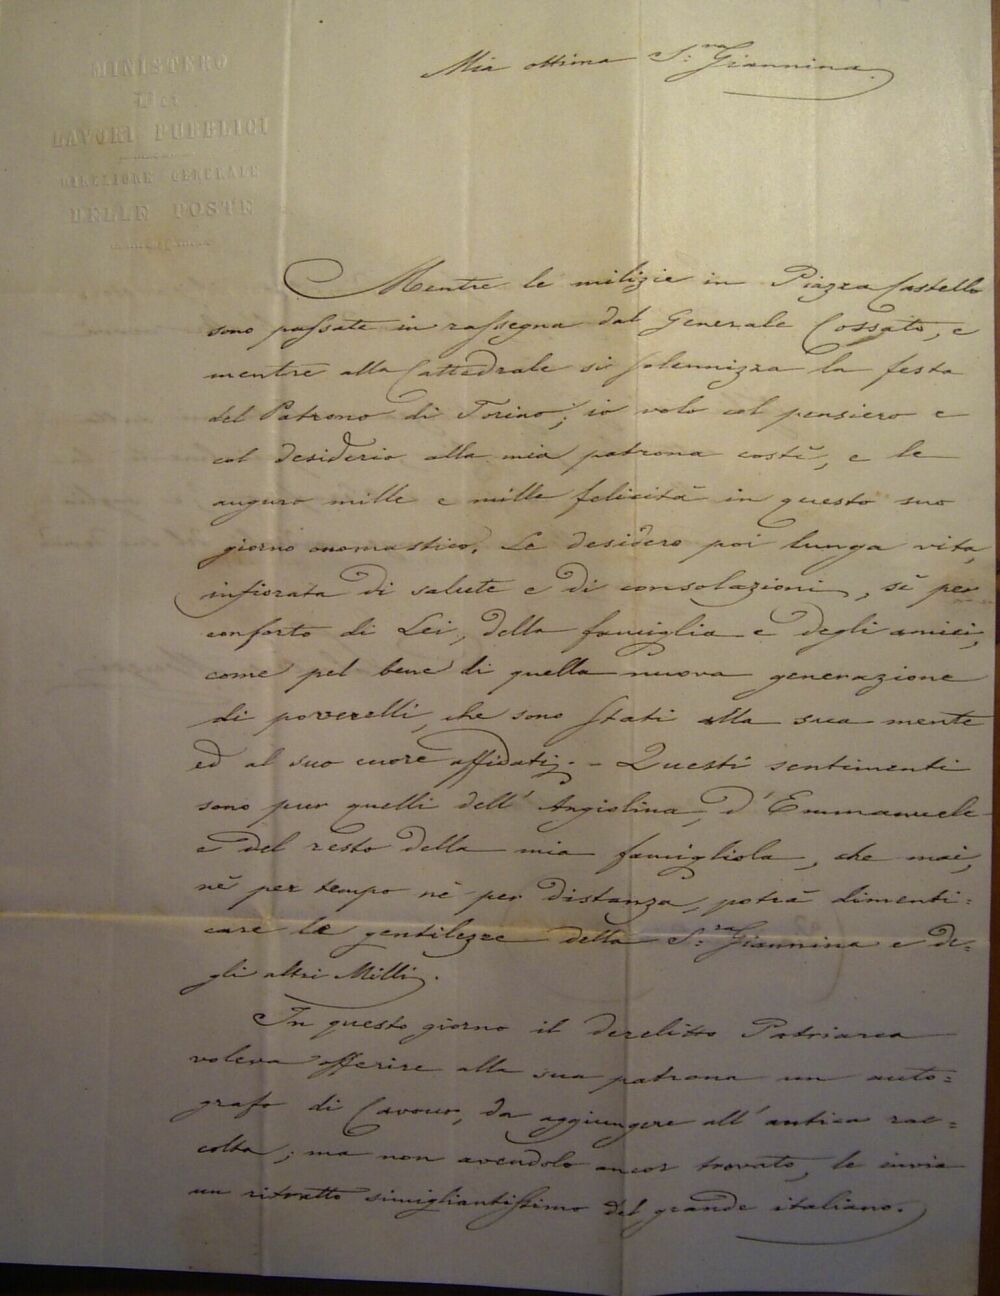 MINISTERO
DEI
LAVORI PUBBLICI
DIREZIONE GENERALE
DELLE POSTE
Mia ottima S.ra Giannina.
Mentre le milizie in Piazza Castello
sono passate in rassegna dal Generale Cossato, e
mentre alla Cattedrale si solennizza la festa
del Patrono di Torino; io volo col pensiero e
col desiderio alla mia patrona costì, e le
auguro mille e mille felicità in questo suo
giorno onomastico. Le desidero poi lunga vita,
infiorata di salute e di consolazioni, sì per
conforto di Lei, della famiglia e degli amici,
come pel bene di quella nuova generazione
di poverelli, che sono stati alla sua mente
ed al suo cuore affidati. - Questi sentimenti
sono pur quelli dell'Angiolina, d'Emmanuele
e del resto della mia famigliola, che mai,
nè per tempo nè per distanza, potrà dimenti=
care le gentilezze della S.ra Giannina e de=
gli altri Milli.
In questo giorno il derelitto Patriarca
voleva offerire alla sua patrona un auto=
grafo di Cavour, da aggiungere all'antica rac=
colta; ma non avendolo ancor trovato, le invia
un ritratto simigliantissimo del grande italiano.